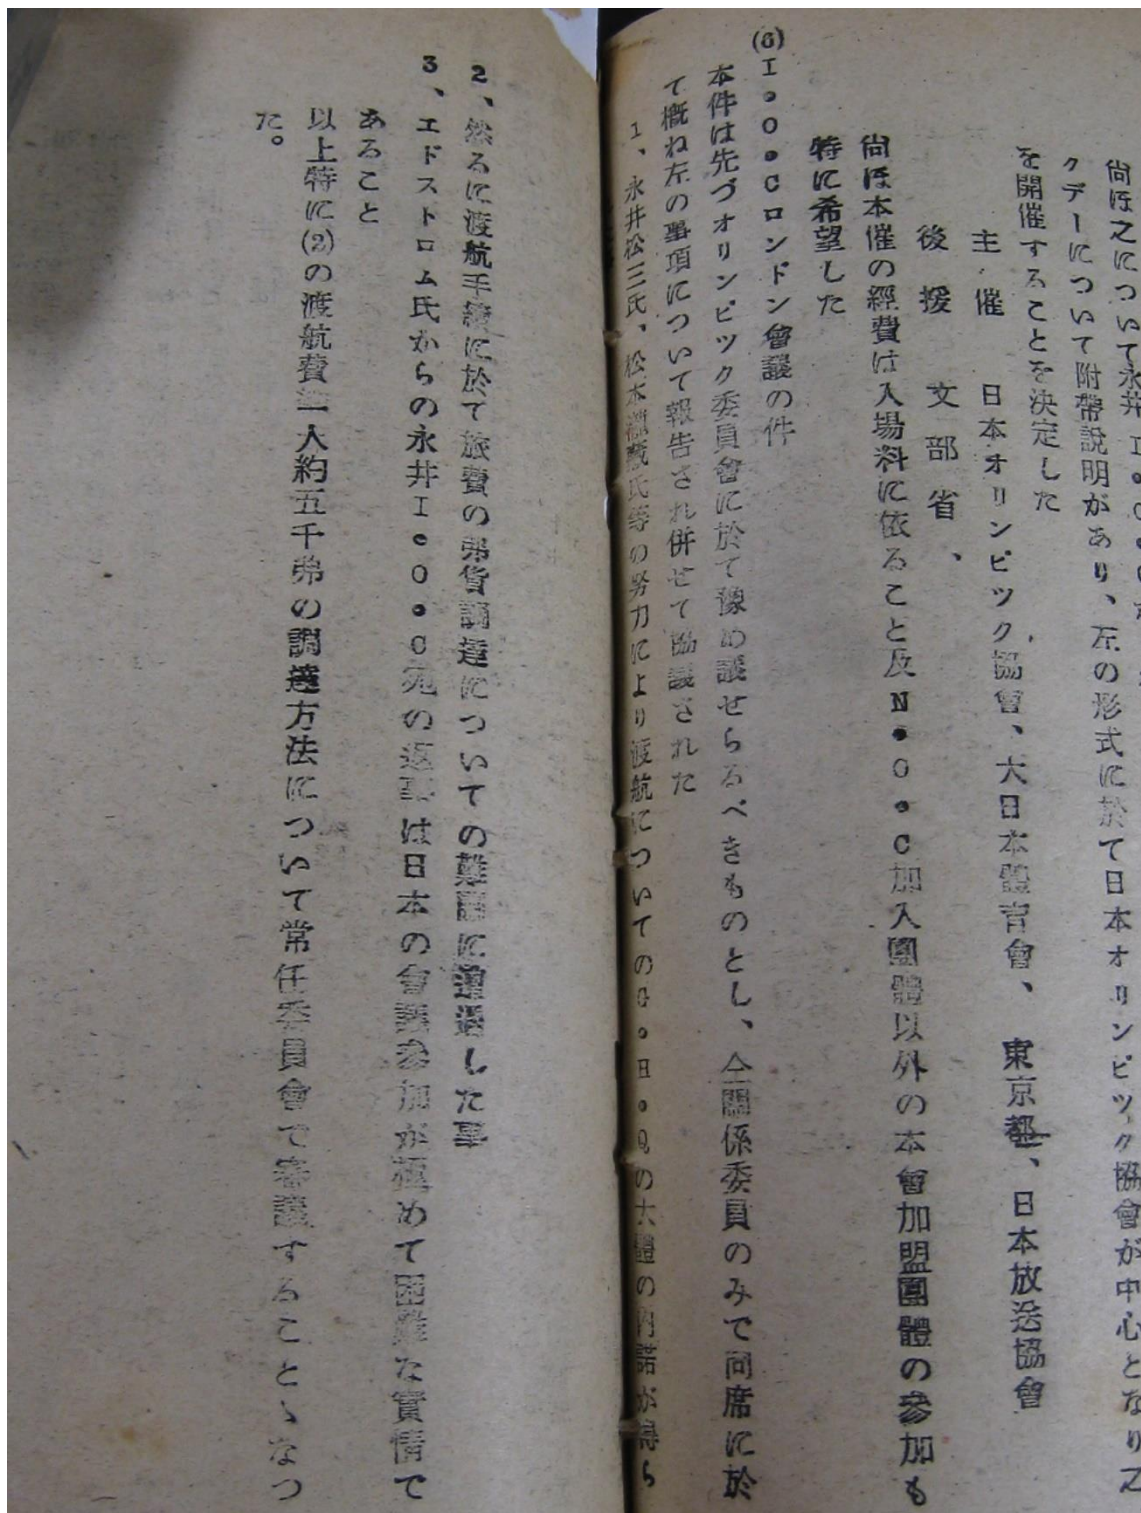 尚ほ之について永井I.O.C
クデーについて附帶說明があり、左の形式に於て日本オリンピツク協會が中心となり之
を開催することを決定した
主、催　日本オリンピツク協會、大日本體育會、東京都、日本放送協會
後援　文部省、
尚ほ本催の經費は入場料に依ること及N.O.C加入團體以外の本會加盟團體の参加も
特に希望した
(6)I.O.Cロンドン會議の件
本件は先づオリンピツク委員會に於て豫め議せらるべきものとし、全關係委員のみで同席に於
て概ね左の事項について報告され併せて協議された
1、永井松三氏、松本瀧藏氏等の努力により渡航についてのG.H.Qの大體の内諾が得ら
2、然るに渡航手續に於て旅費の弗貨調達についての難關に遭遇した事
3、エドストロム氏からの永井I.O.C宛の返事は日本の會議参加が極めて困難な實情で
あること
以上特に(2)の渡航費一人約五千弗の調達方法について常任委員會で審議することゝなつ
た。